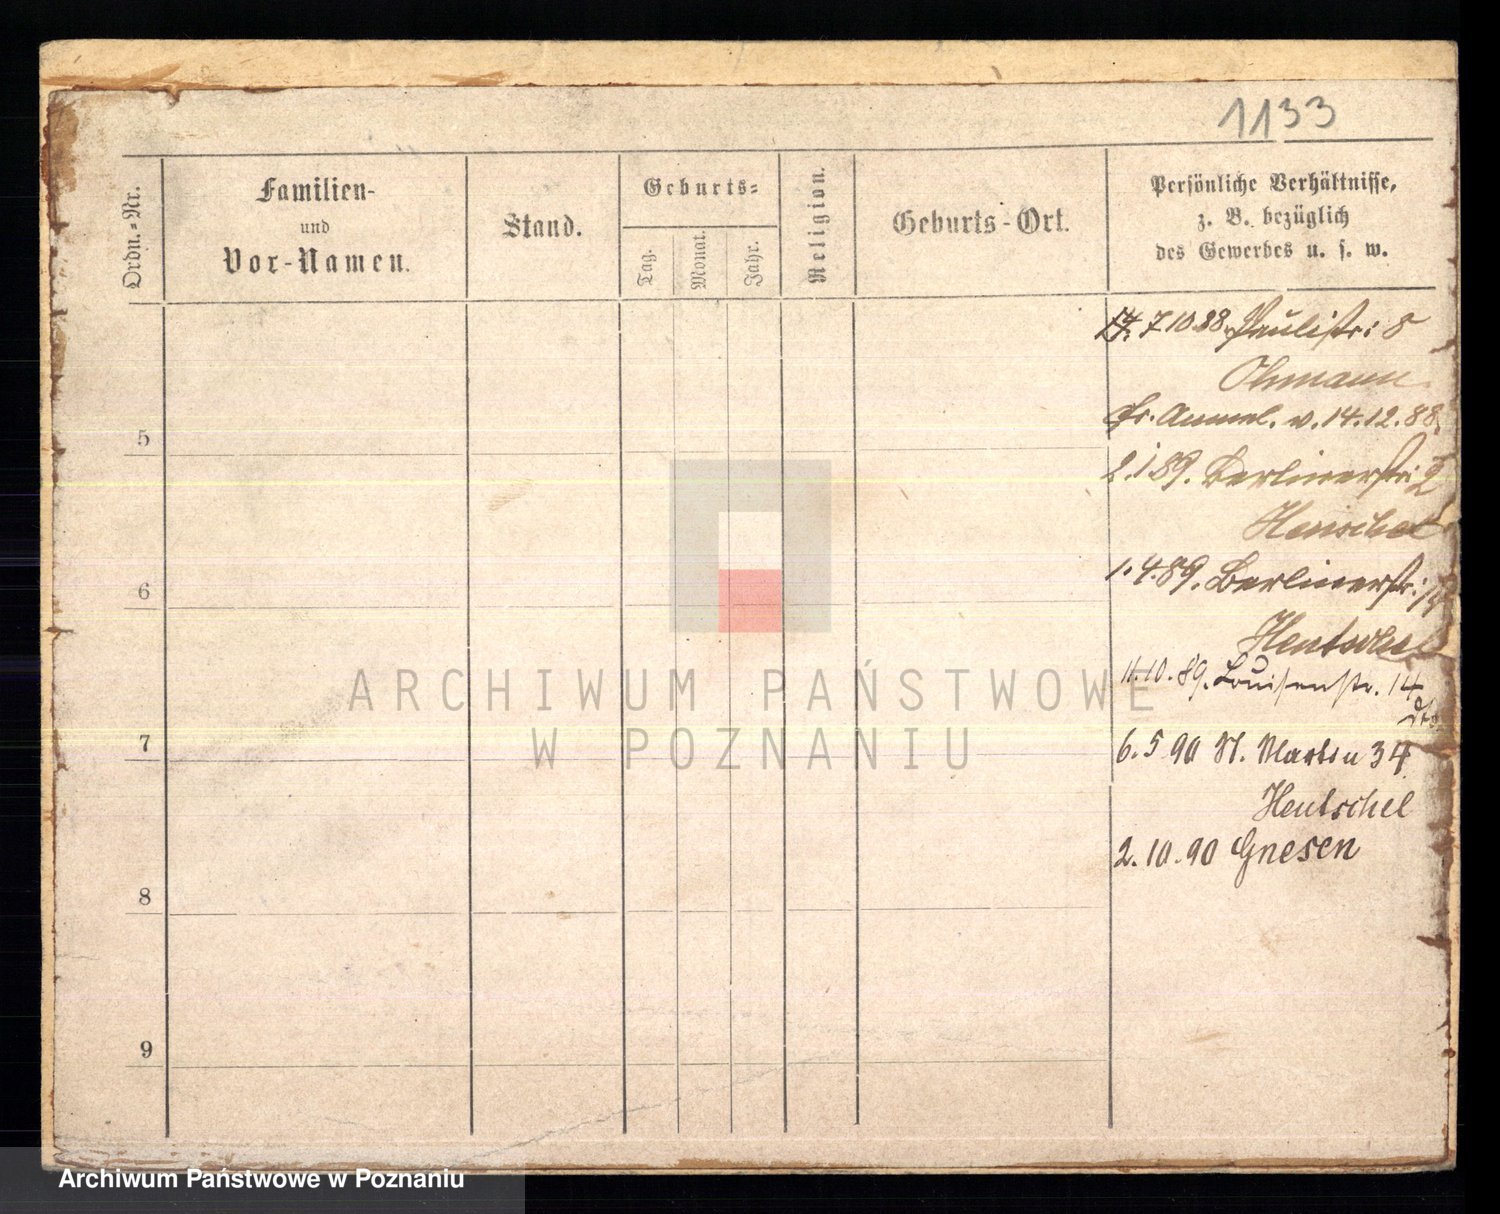 1133
Ordn.-Nr.
Familien-
und
Vor-Namen.
Stand.
Geburts-
Tag.
Monat.
Jahr.
Religion.
Geburts-Ort.
Persönliche Verhältnisse,
z. B. bezüglich
des Gewerbes u. s. w.
7 10 88. Paulistr: 8
Ohmann
fr. Anmel. v. 14.12.88.
5
2.1 89. Berlinerstr:
Henschel
1.4.89. Berlinerstr:
6
Hentschel
11.10.89. Louisenstr. 14
dto
6.5 90 St. Martin 34
7
Hentschel
2.10.90 Gnesen
8
9
ARCHIWUM PAŃSTWOWE
W POZNANIU
Archiwum Państwowe w Poznaniu